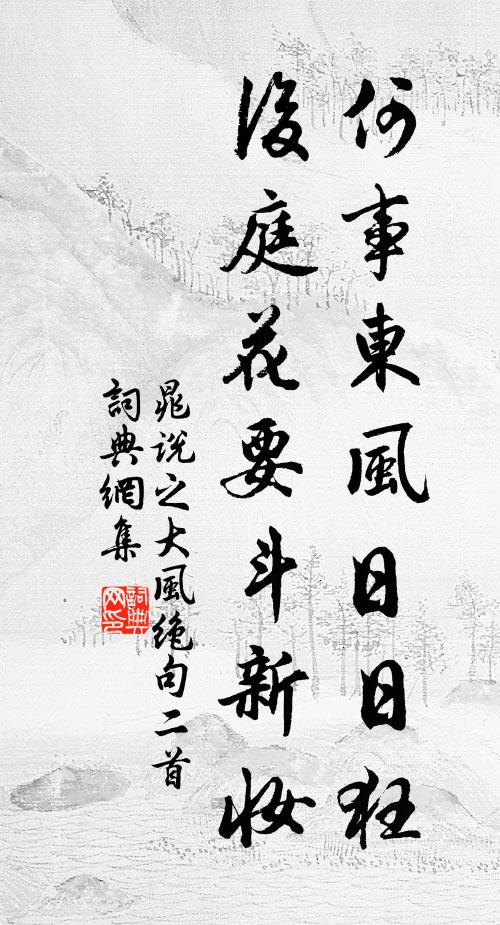 何事東風日日狂
後庭花要斗新妝
晁說之大風絕句二首
詞典網集
詞典
网印